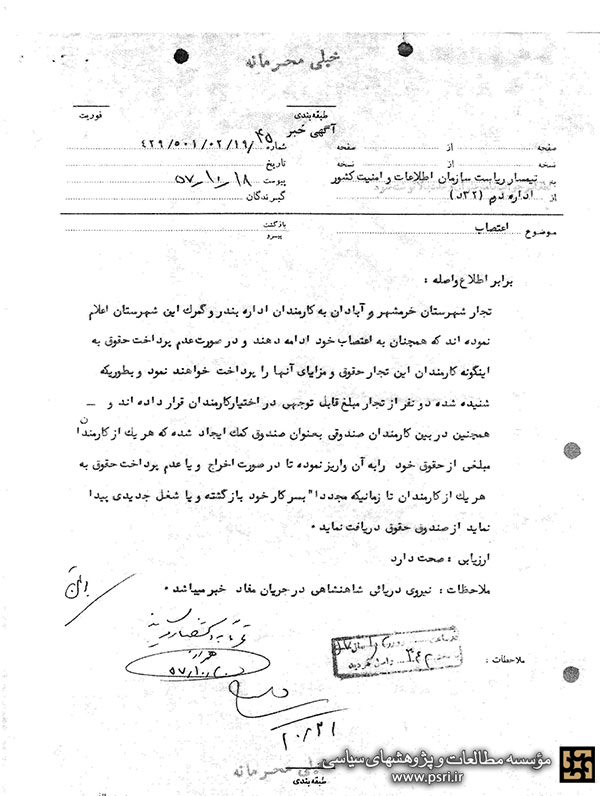 خیلی محرمانه
طبقه‌بندی
فوریت
آگهی خبر
صفحه از صفحه
شماره ۴۲۹/۵۰۱/۰۲/۱۹/۴۵
نسخه از نسخه
تاریخ
به تیمسار ریاست سازمان اطلاعات و امنیت کشور
پیوست ۵۷/۱۰/۱۸
از اداره دوم (۳۲د)
گیرندگان
موضوع اعتصاب
بازگشت
پیرو
برابر اطلاع واصله :
تجار شهرستان خرمشهر و آبادان به کارمندان اداره بندر و گمرک این شهرستان اعلام
نموده اند که همچنان به اعتصاب خود ادامه دهند و در صورت عدم پرداخت حقوق به
اینگونه کارمندان این تجار حقوق و مزایای آنها را پرداخت خواهند نمود و بطوریکه
شنیده شده دو نفر از تجار مبلغ قابل توجهی در اختیار کارمندان قرار داده اند و ــ
همچنین در بین کارمندان صندوقی بعنوان صندوق کمک ایجاد شده که هر یک از کارمندان
مبلغی از حقوق خود را به آن واریز نموده تا در صورت اخراج و یا عدم پرداخت حقوق به
هر یک از کارمندان تا زمانیکه مجددا" بسر کار خود بازگشته و یا شغل جدیدی پیدا
نماید از صندوق حقوق دریافت نماید .
ارزیابی : صحت دارد
ملاحظات : نیروی دریائی شاهنشاهی در جریان مفاد خبر میباشد .
ملاحظات :
۵۷/۱۰/۲۰
۱۰/۲۱
خیلی محرمانه
طبقه‌بندی
مؤسسه مطالعات و پژوهشهای سیاسی
www.psri.ir